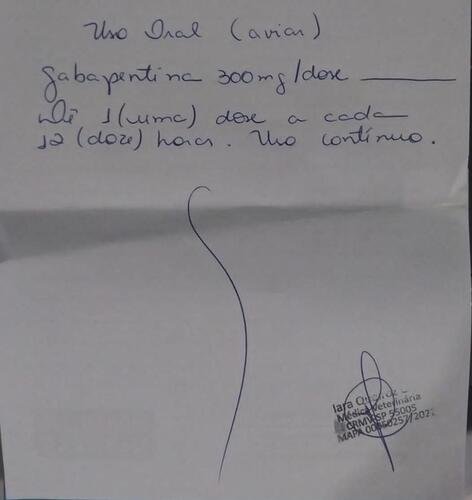 Uso Oral (aviar)
Gabapentina 300mg/dose
Dê 1 (uma) dose a cada
12 (doze) horas. Uso contínuo.
Iara
Médica Veterinária
CRMV-SP 55005
MAPA